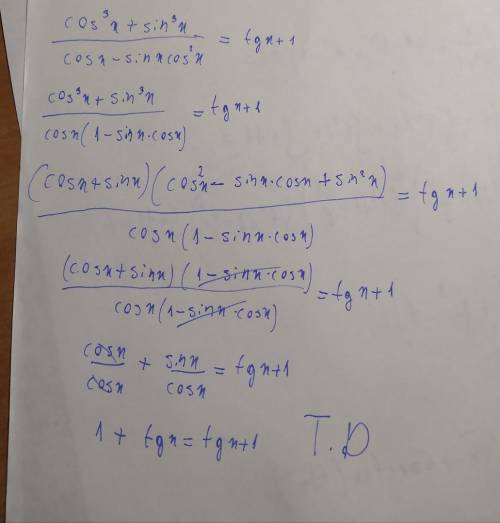 (cos³x + sin³x) / (cosx - sinxcos²x) = tgx+1
(cos³x + sin³x) / (cosx(1 - sinx·cosx)) = tgx+1
((cosx+sinx)(cos²x - sinx·cosx + sin²x)) / (cosx(1 - sinx·cosx)) = tgx+1
((cosx+sinx)(1 - sinx·cosx)) / (cosx(1 - sinx·cosx)) = tgx+1
cosx/cosx + sinx/cosx = tgx+1
1 + tgx = tgx+1 T.D